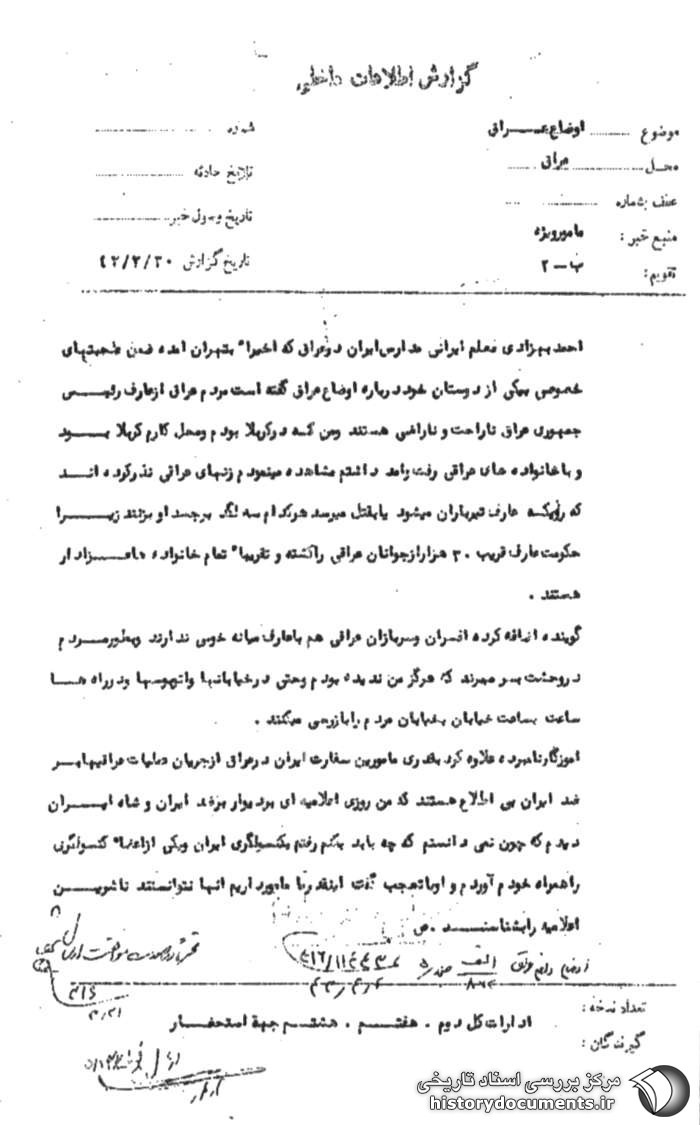 گزارش اطلاعات داخلی
موضوع ............ اوضاع عراق
شماره ............
محل ............ عراق ............
تاریخ حادثه ............
عطف بشماره ............
تاریخ وصول خبر ............
منبع خبر : مامور ویژه
تاریخ گزارش ۴۲/۲/۳۰
تقویم : ب - ۲
احمد بهزادی معلم ایرانی مدارس ایران در عراق که اخیرا" بتهران آمده ضمن صحبتهای
خصوصی بیکی از دوستان خود درباره اوضاع عراق گفته است مردم عراق از عارف رئیس
جمهوری عراق ناراحت و ناراضی هستند ومن که در کربلا بودم ومحل کارم کربلا بود
و با خانواده های عراقی رفت وآمد داشتم مشاهده مینمودم زنهای عراقی نذر کرده اند
که روزیکه عارف تیرباران میشود یا بقتل میرسد هرکدام سه لگد بر جسد او بزنند زیرا
حکومت عارف قریب ۳۰ هزار از جوانان عراقی را کشته و تقریبا" تمام خانواده ها عزادار
هستند .
گوینده اضافه کرده افسران وسربازان عراقی هم با عارف میانه خوبی ندارند وبطور مردم
در وحشت بسر میبرند که هرگز من ندیده بودم وحتی در خیابانها واتوبوسها ودر راه ها
ساعت بساعت خیابان بخیابان مردم را بازرسی میکنند .
آموزگار نامبرده علاوه کرد بقدری مامورین سفارت ایران در عراق از جریان عملیات عراقیها بر
ضد ایران بی اطلاع هستند که من روزی اعلامیه ای بر دیوار برضد ایران و شاه ایران
دیدم که چون نمی دانستم که چه باید بکنم رفتم بکنسولگری ایران ویکی از اعضا" کنسولگری
را همراه خودم آوردم و او با تعجب گفت اینقدر ما مامور داریم آنها نتوانستند ناشرین
اعلامیه را بشناسند . ص
الف
تعداد نسخه :
گیرندگان :
ادارات کل دوم . هفتم . هشتم جهة استحضار
مرکز بررسی اسناد تاریخی
historydocuments.ir